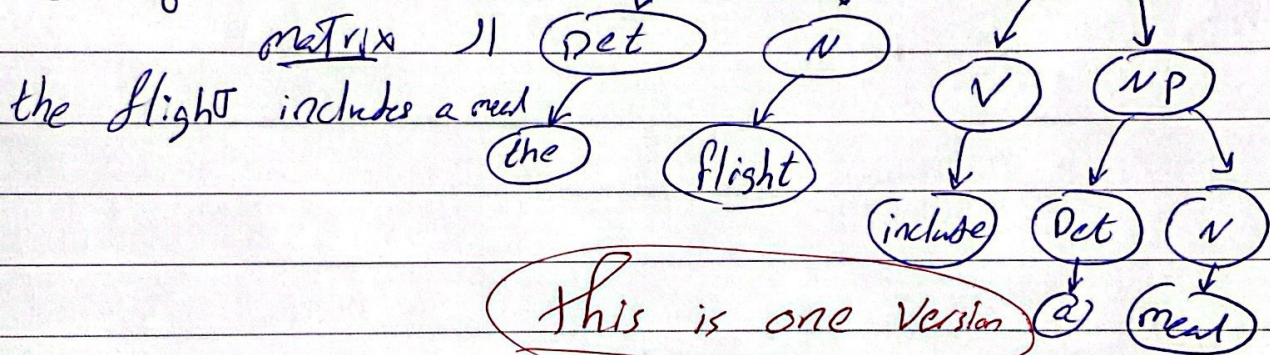 matrix ال Det N
V NP
the flight includes a meal
the flight
include Det N
this is one version a meal